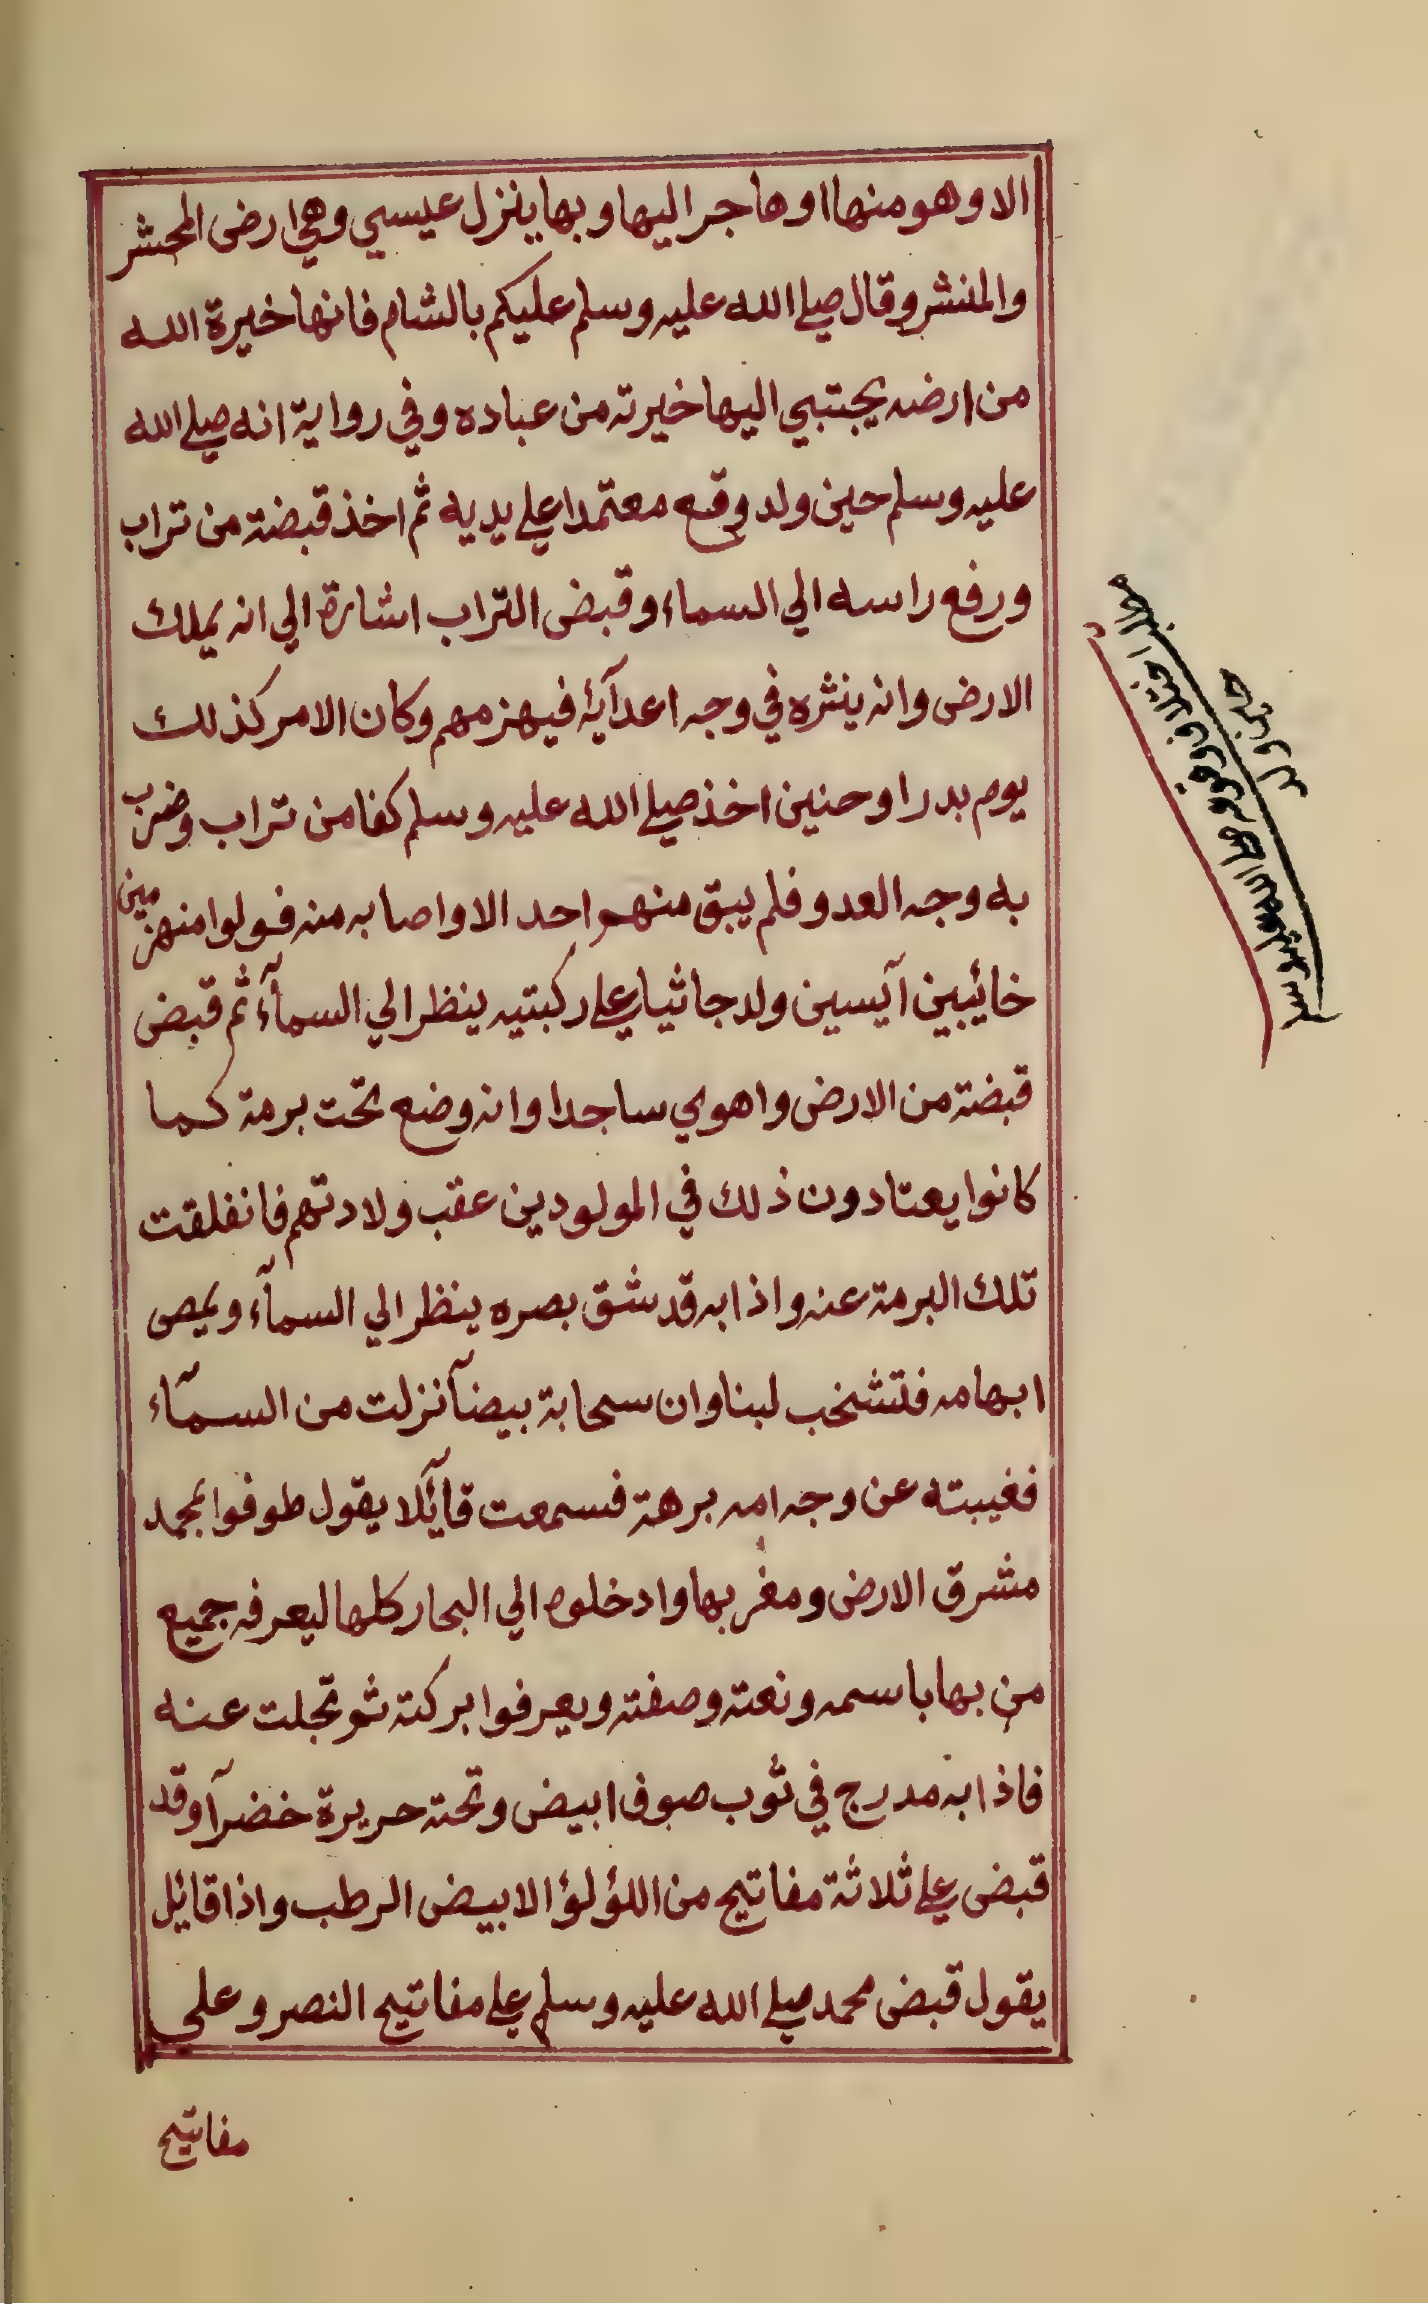 الا وهو منها او هاجر اليها وبها ينزل عيسي وهي ارض المحشر
والمنشر وقال صلے الله عليه وسلم عليكم بالشام فانها خيرة الله
من ارضه يجتبي اليها خيرته من عباده وفي رواية انه صلے الله
عليه وسلم حين ولد وقع معتمدا علے يديه ثم اخذ قبضة من تراب
ورفع راسه الي السماء وقبض التراب اشارة الي انه يملك
الارض وانه ينثره في وجه اعدآئه فيهزمهم وكان الامر كذلك
يوم بدر اوحنين اخذ صلے الله عليه وسلم كفا من تراب وضرب
به وجه العدو فلم يبق منهم احد الا واصابه منه فولوا منهزمين
خائبين آيسين ولد جاثيا علے ركبتيه ينظر الي السمآء ثم قبض
قبضة من الارض واهوي ساجدا وانه وضع تحت برمة كما
كانوا يعتادون ذلك في المولودين عقب ولادتهم فانفلقت
تلك البرمة عنه واذا به قد شق بصره ينظر الي السمآء ويمص
ابهامه فتشخب لبنا وان سحابة بيضآ نزلت من السمآء
فغيبته عن وجه امه برهة فسمعت قآئلا يقول طوفوا بمحمد
مشرق الارض ومغربها وادخلوه الي البحار كلها ليعرفه جميع
من بها باسمه ونعته وصفته ويعرفوا بركته ثم تجلت عنه
فاذا به مدرج في ثوب صوف ابيض وتحته حريرة خضرآ وقد
قبض علے ثلاثة مفاتيح من اللؤلؤ الابيض الرطب واذا قائل
يقول قبض محمد صلے الله عليه وسلم علے مفاتيح النصر وعلي
مفاتيح
مطلب اختلاف وقوعه صلے الله عليه وسلم
حين ولد